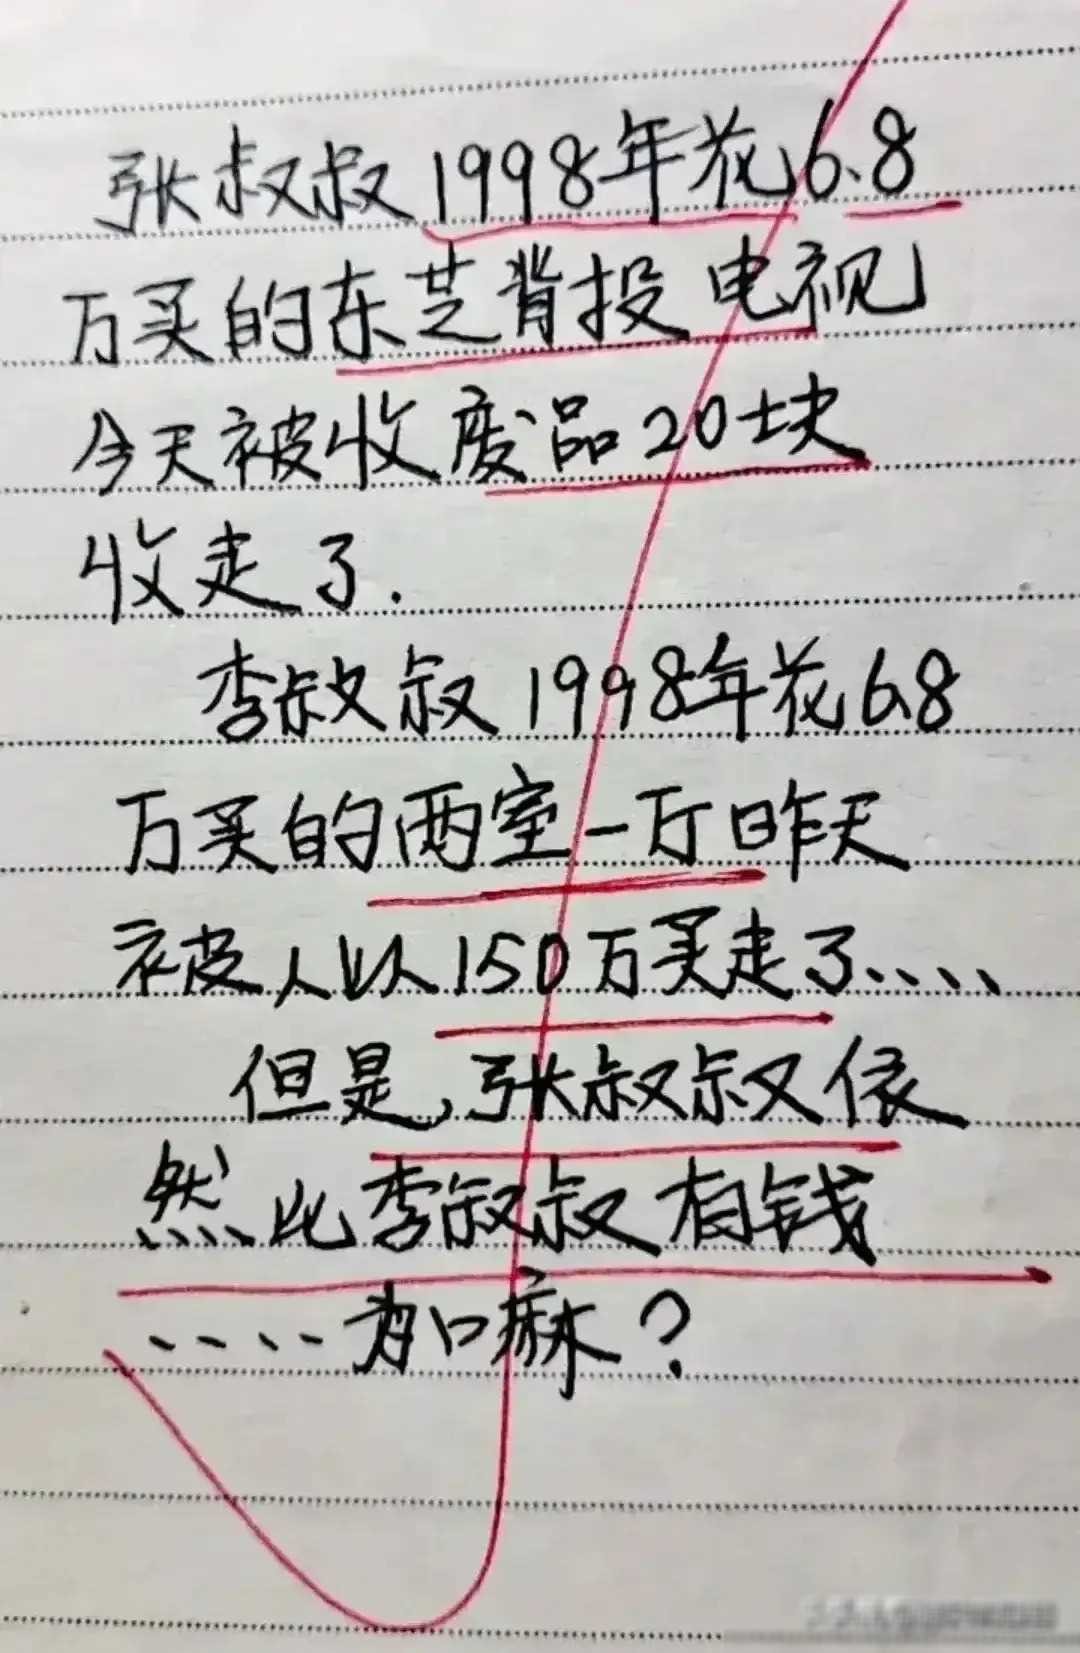 张叔叔1998年花6.8
万买的东芝背投电视
今天被收废品20块
收走了.
李叔叔1998年花6.8
万买的两室一厅昨天
被人以150万买走了、、、、
但是,张叔叔依
然比李叔叔有钱
....为口麻?